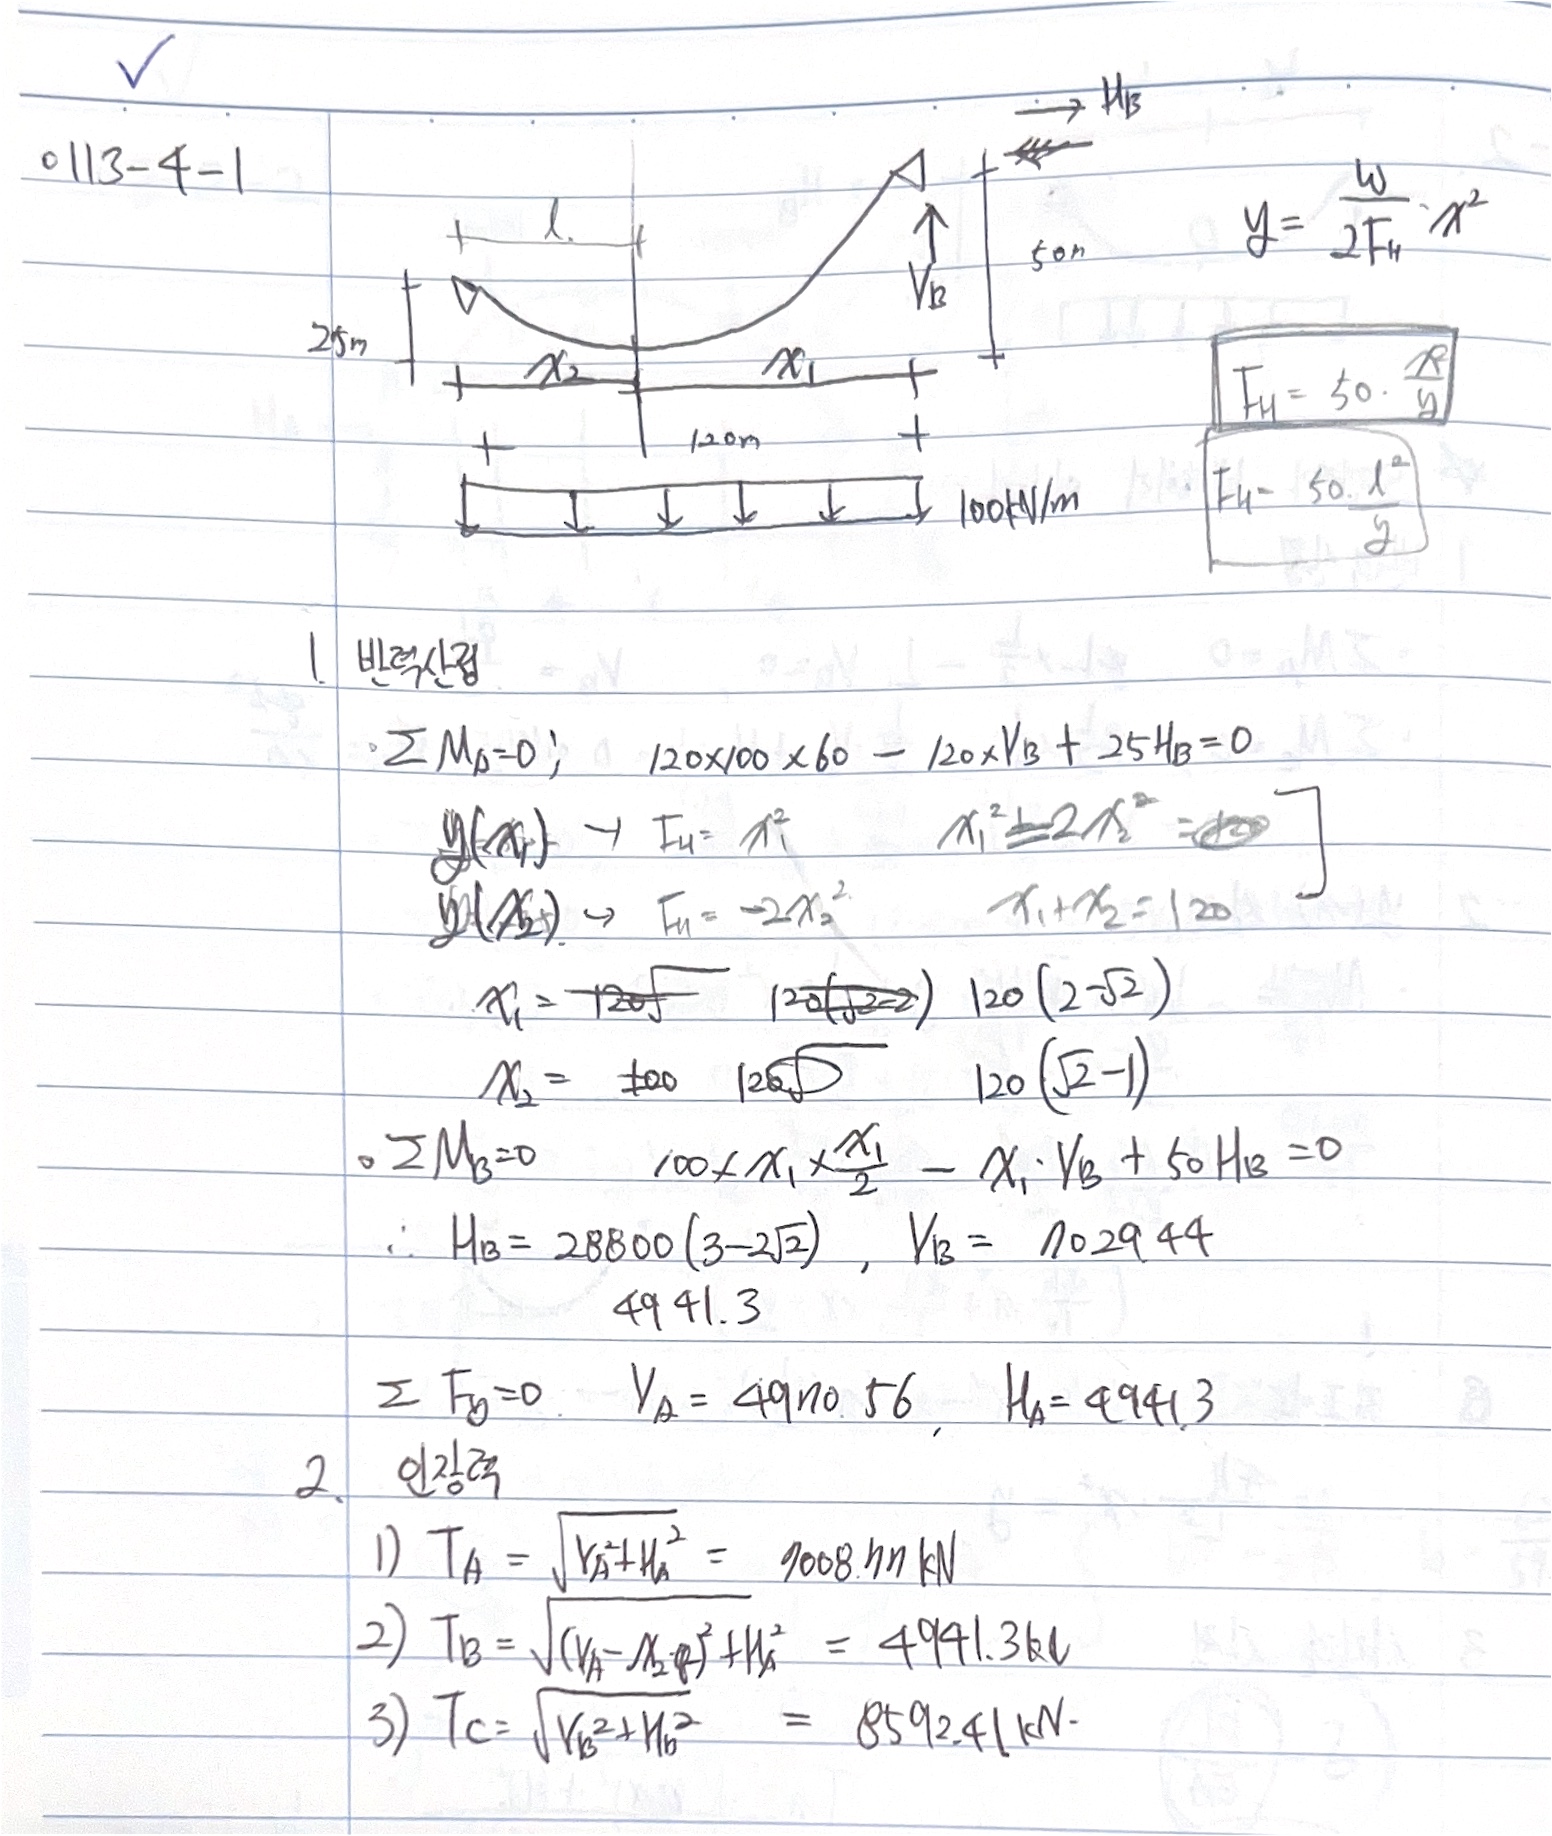 ✓
→ H_B
o 113-4-1
l.
y = W/(2F_H) · x²
50m
V_B
25m
x₂ x₁
F_H = 50 ·
120m
F_H = 50. l²/y
100kN/m
1. 반력산정
· ΣM_A=0; 120×100×60 - 120×V_B + 25H_B=0
y(x₁) → F_H = x₁² x₁² = 2x₂²
y(x₂) → F_H = -2x₂² x₁+x₂=120
x₁ = 120(2-√2)
x₂ = 120(√2-1)
∘ ΣM_B=0 100×x₁×x₁/2 - x₁·V_B + 50H_B=0
∴ H_B = 28800(3-2√2), V_B = 7029.44
4941.3
ΣF_y=0. V_A = 4970.56, H_A = 4941.3
2. 인장력
1) T_A = √(V_A²+H_A²) = 7008.77 kN
2) T_B = √((V_A-x₂·q)²+H_A²) = 4941.3kN
3) T_C = √(V_B²+H_B²) = 8592.41 kN.